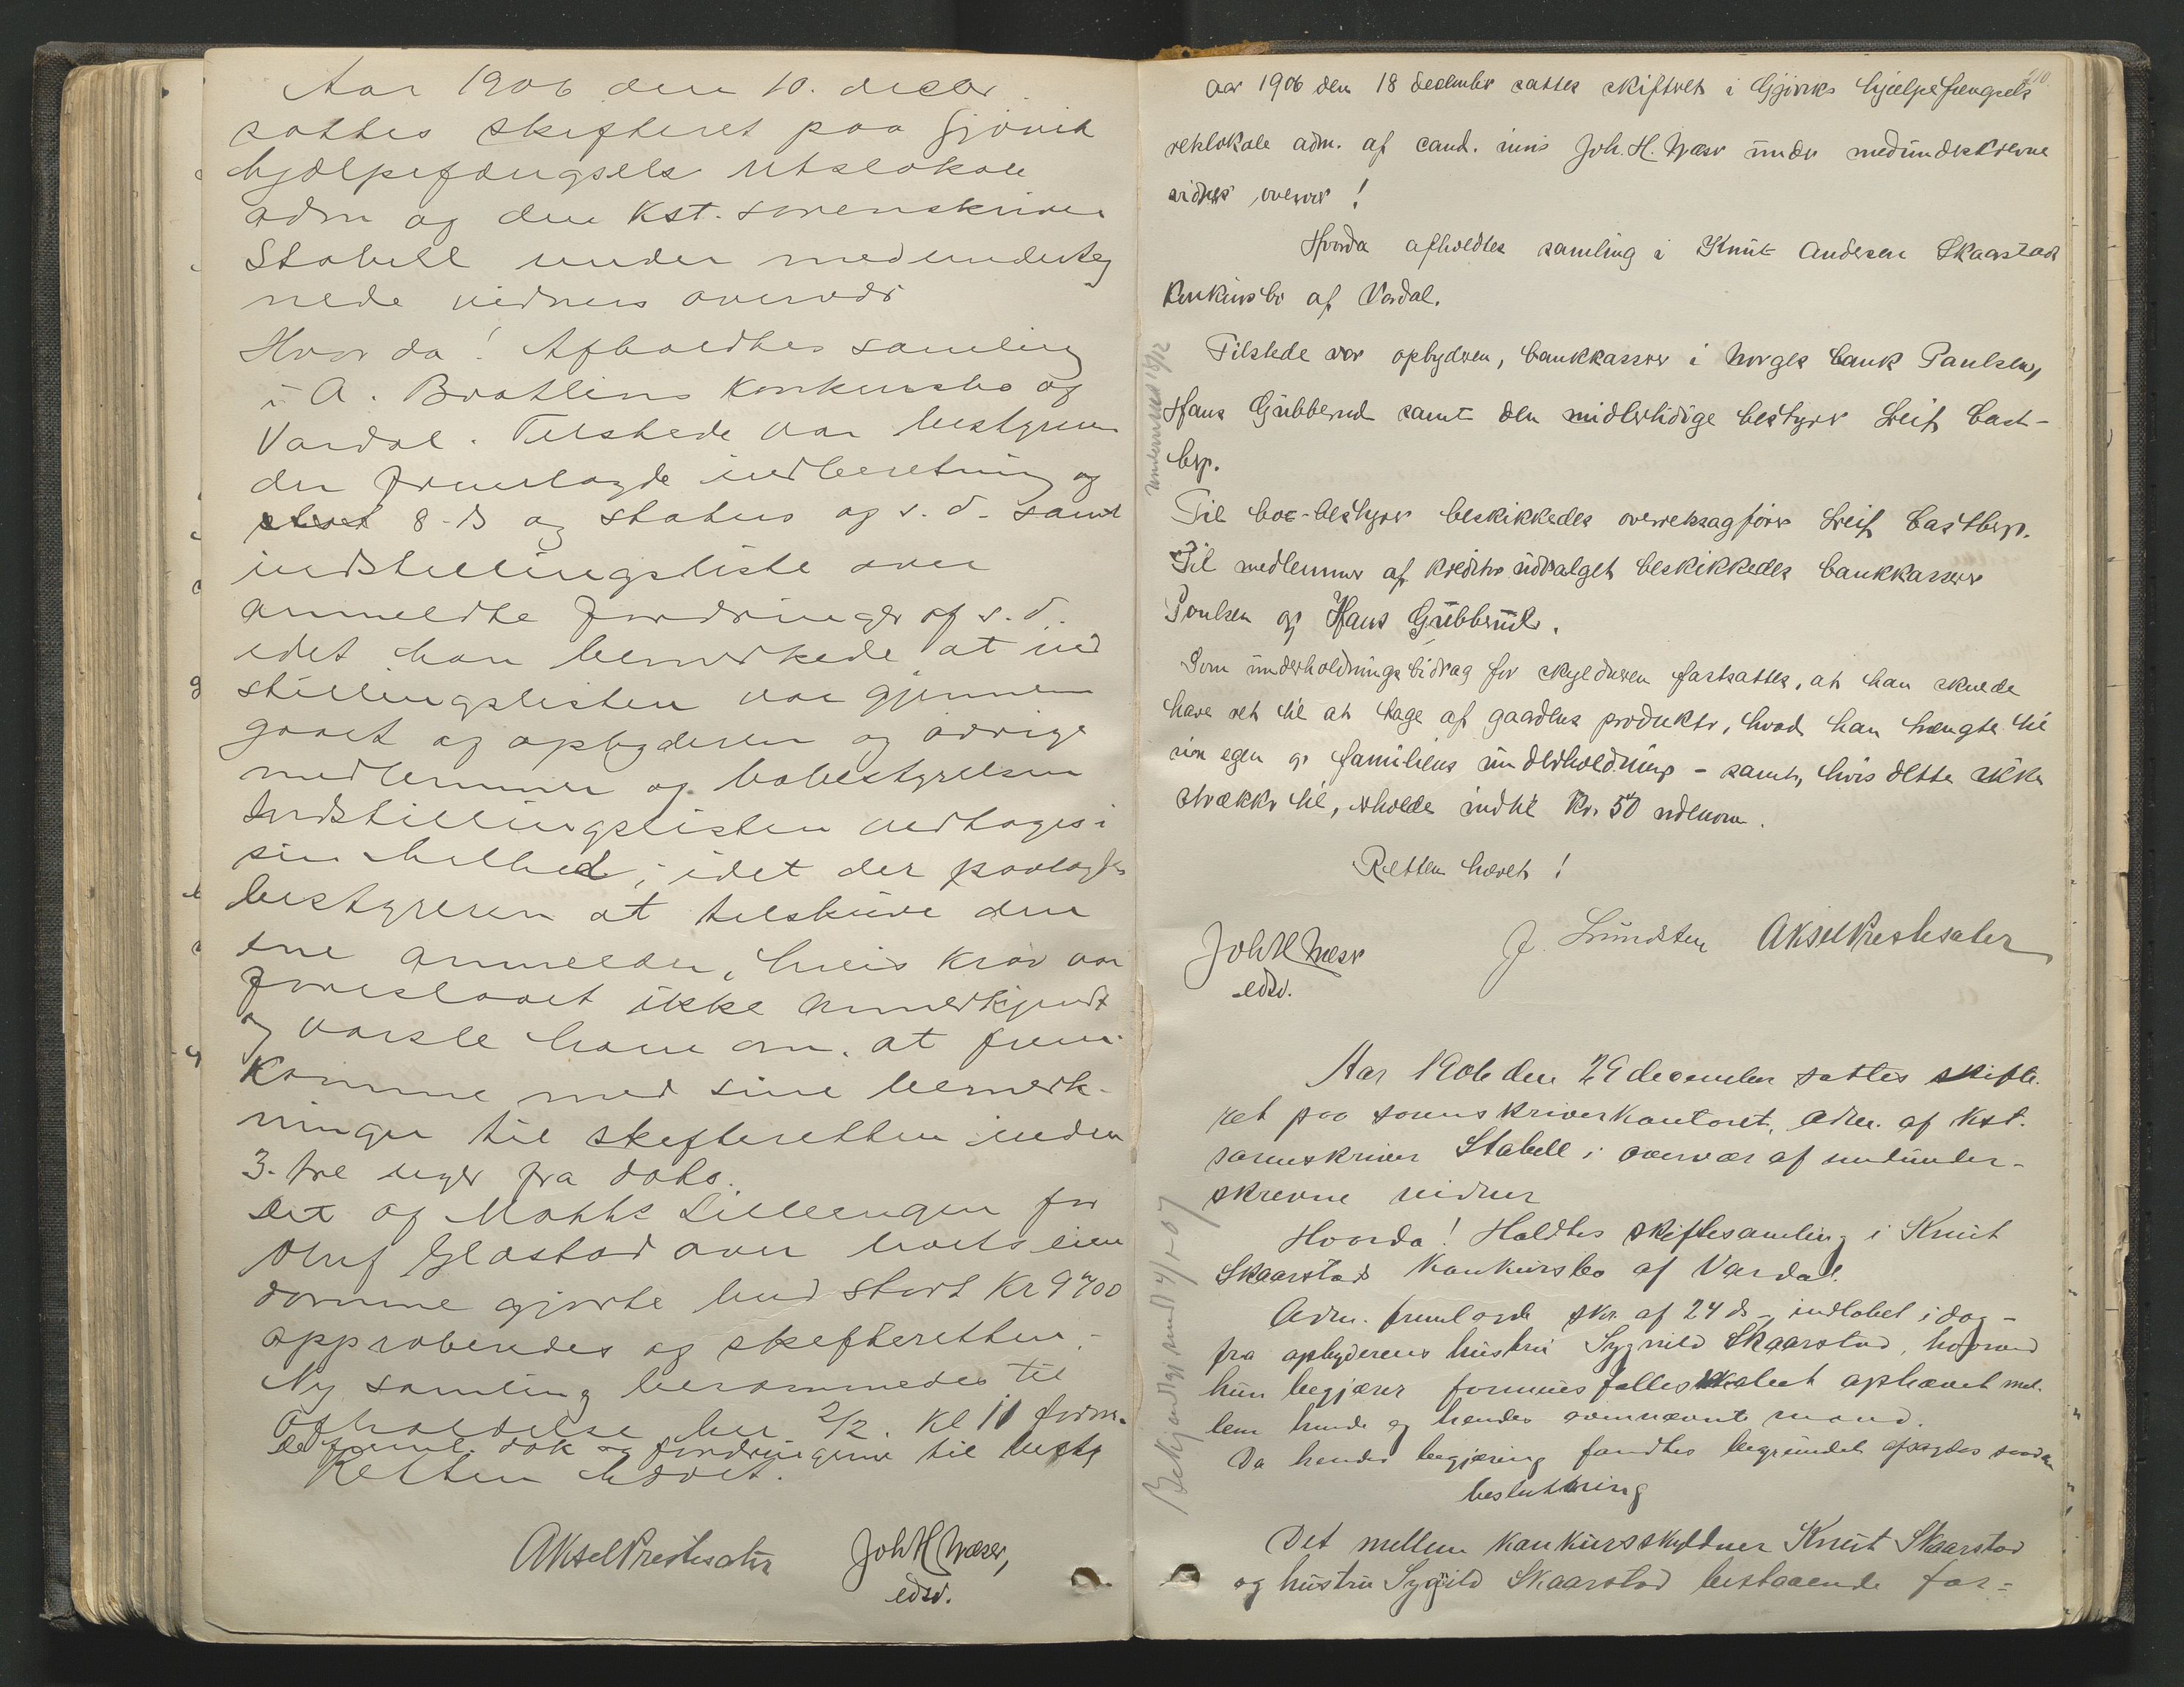 Aar 1906 den 10. decbr.
sattes skifteret paa Gjøvik
hjælpefængsels retslokale
adm af den Kst. sorenskriver
Stabell under medunderteg
nede vidners overvær
Hvorda! Afholdtes samling
i A. Bratliens Konkursbo af
Vardal. Tilstede var bestyreren
der fremlagde indberetning af
8-ds og status af s.d. samt
indstillingsliste over
anmeldte fordringer af s.d.
idet han bemerkede at ind
stillingslisten var gjennem
gaaet af opbyderen og øvrige
medlemmer af bobestyrelsen
Indstillingslisten vedtoges i
sin helhed, idet der paalagdes
bestyreren at tilskrive den
ene anmelder, hvis krav var
foreslaaet ikke anerkjendt
og varsle ham om at frem-
komme med sine bemerk-
ninger til skifteretten inden
3-tre uger fra dato.
Det af Mathis Lilleengen for
Oluf Glæstad over boets eien
domme gjorte bud stort Kr 9400
approberedes af skifteretten.
Ny samling berammedes til
afholdelse her 2/2. Kl 11 form.
De freml. dok og fordringerne til besty
Retten hævet.
Aksel Prestesæter Joh H Næser,
edsv.
110
Aar 1906 den 18 december sattes skifteret i Gjøviks hjælpefængsels
retslokale adm. af cand. iuris Joh. H. Næser under medunderskrevne
vidners overvær!
Hvorda afholdtes samling i Knut Andersen Skaarstad
Konkursbo af Vardal.
Tilstede var opbyderen, bankkasserer i Norges bank Paulsen,
Hans Gubberud samt den midlertidige bestyrer Leif Cast-
berg.
Til bo-bestyrer beskikkedes overretssagfører Leif Castberg.
Til medlemmer af kreditorudvalget beskikkedes bankkasserer
Poulsen og Hans Gubberud.
Som underholdningsbidrag for skyldneren fastsattes, at han skulde
have ret til at tage af gaardens produkter, hvad han trængte til
sin egen og familiens underholdning - samt, hvis dette ikke
strækker til, erholde indtil Kr. 50 udenom.
Retten hævet!
Joh H Næser J. Lundsten Aksel Prestesæter
edsv.
Aar 1906 den 29 december sattes skifte-
ret paa sorenskriverkontoret, adm. af Kst.
sorenskriver Stabell i overvær af medunder-
skrevne vidner
Hvorda! Holdtes skiftesamling i Knut
Skaarstads Konkursbo af Vardal.
Adm. fremlagde skr. af 24 ds - indløbet i dag -
fra opbyderens hustru Sygnild Skaarstad, hvorved
hun begjærer formuesfællesskabet ophævet mel-
lem hende og hendes ovennævnte mand.
Da hendes begjæring fandtes begrundet afsagdes saadan
beslutning
Det mellem konkursskyldner Knut Skaarstad
og hustru Sygnild Skaarstad bestaaende for-